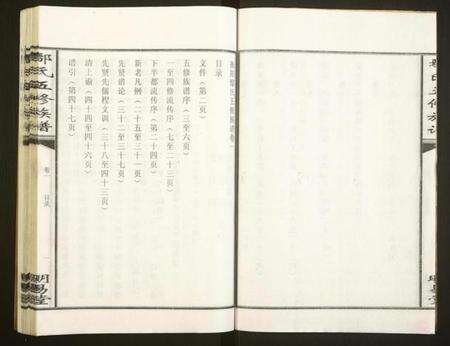 衡阳邹氏五修族谱卷一
目录
文件（第二页）
五修族谱序（三至六页）
一至四修流传序（七至二十三页）
下半部流传序（第二十四页）
新老凡例（二十五至三十一页）
先贤谱论（三十二至三十七页）
先贤先儒程文训（三十八至四十三页）
清上谕（四十四至四十六页）
谱引（第四十七页）
邹氏五修族谱
卷一
目录
一
明易堂